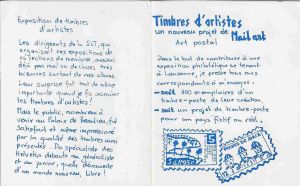 Exposition de timbres
d'artistes
Les dirigeants de la SLT, qui
organisent ces expositions de
collections de nombre, avaient
déjà pas mal vu de choses très
bizarres surtout de nos clubs.
Leur surprise fut tout de même
importante quand je fis
les timbres d'artistes !
Mais le public, nombreux à
venir au Palais de Beaulieu, fut
satisfait et même impressionné
par la qualité des timbres ainsi
présentés. Du spécialiste des
Helvetia debouts au généraliste
et au junior, quelle découverte
d'un monde nouveau, libre !
Timbres d'artistes
un nouveau projet de Mail art
Art postal
Dans le but de contribuer à une
exposition philatélique se tenant
à Lausanne, je presse tous mes
correspondants à m'envoyer :
- soit 100 exemplaires d'un
timbre-poste de leur création,
- soit un projet de timbre-poste
pour un pays fictif ou réel.
5